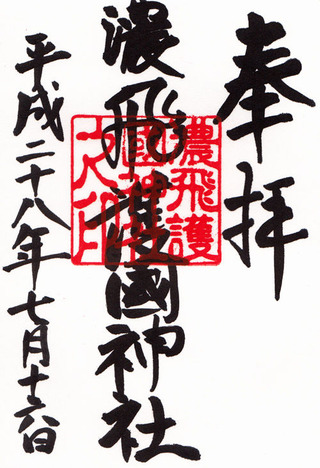 奉拝
濃飛護國神社
濃飛護
國神社
之印
平成二十八年七月十六日